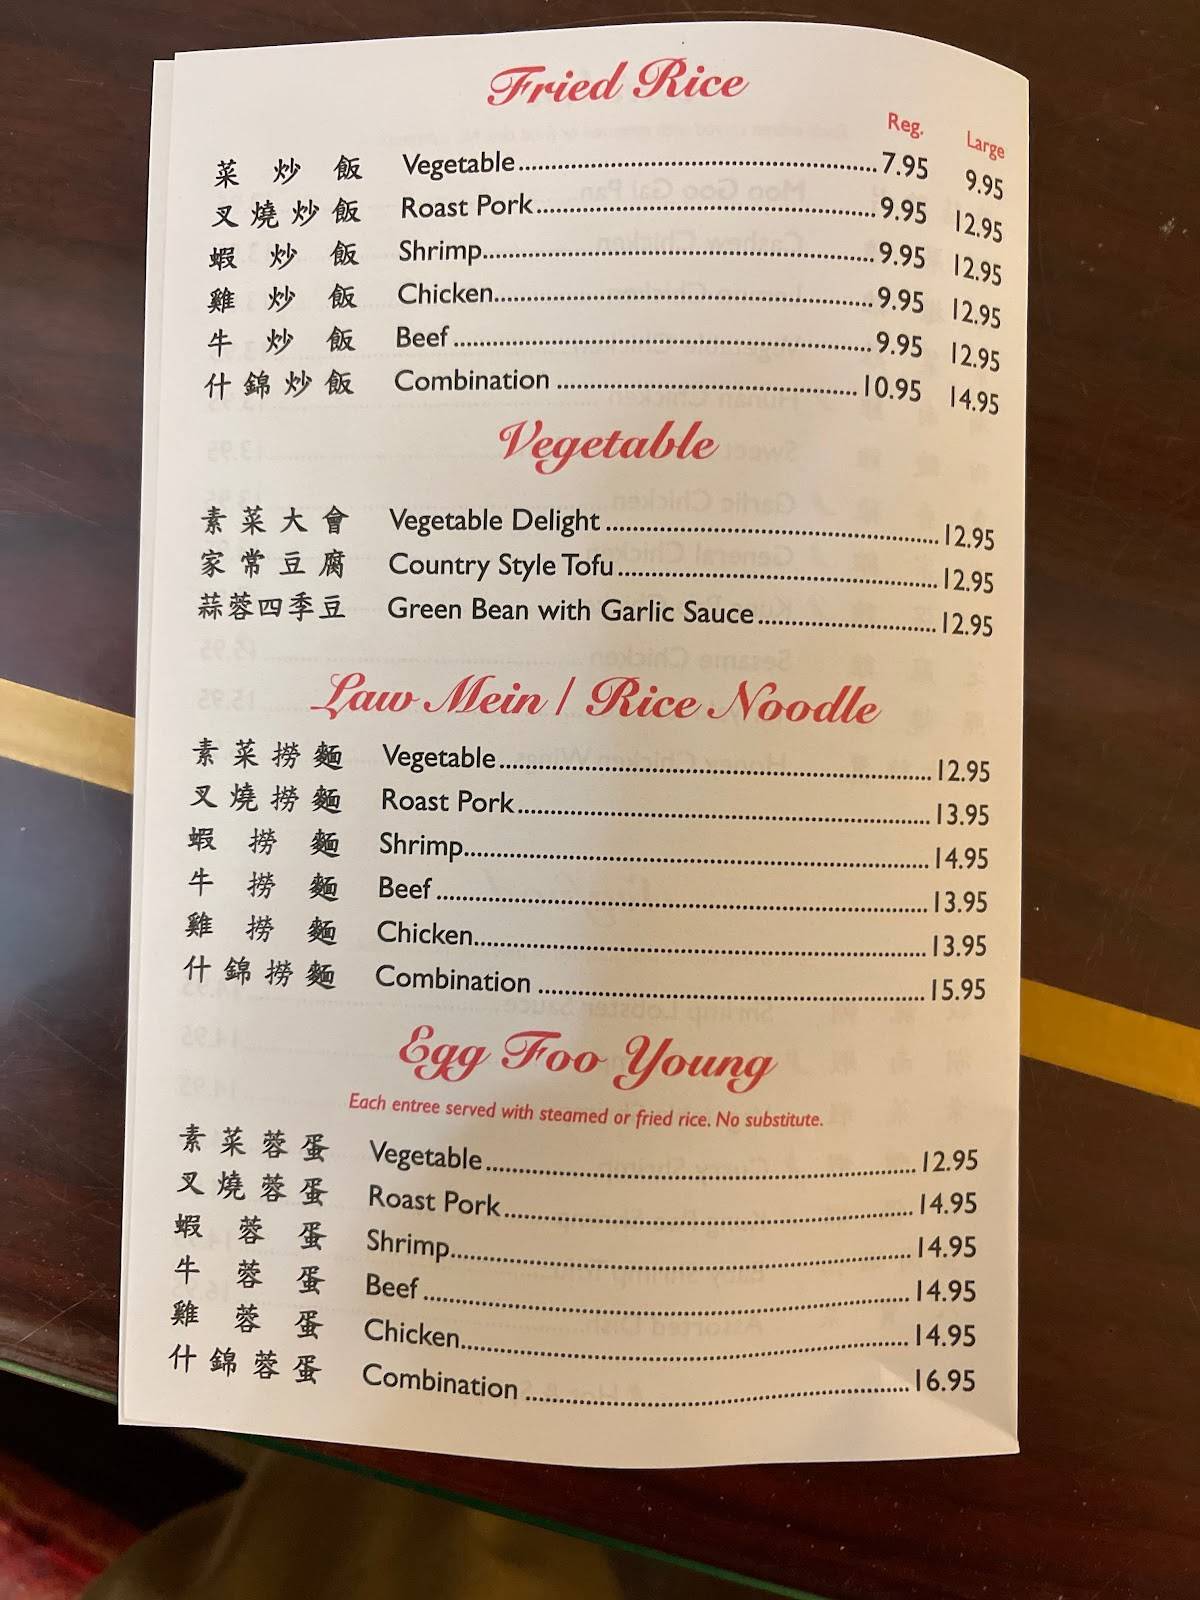 Fried Rice
Reg. Large
菜炒飯 Vegetable 7.95 9.95
叉燒炒飯 Roast Pork 9.95 12.95
蝦炒飯 Shrimp 9.95 12.95
雞炒飯 Chicken 9.95 12.95
牛炒飯 Beef 9.95 12.95
什錦炒飯 Combination 10.95 14.95
Vegetable
素菜大會 Vegetable Delight 12.95
家常豆腐 Country Style Tofu 12.95
蒜蓉四季豆 Green Bean with Garlic Sauce 12.95
Law Mein / Rice Noodle
素菜撈麵 Vegetable 12.95
叉燒撈麵 Roast Pork 13.95
蝦撈麵 Shrimp 14.95
牛撈麵 Beef 13.95
雞撈麵 Chicken 13.95
什錦撈麵 Combination 15.95
Egg Foo Young
Each entree served with steamed or fried rice. No substitute.
素菜蓉蛋 Vegetable 12.95
叉燒蓉蛋 Roast Pork 14.95
蝦蓉蛋 Shrimp 14.95
牛蓉蛋 Beef 14.95
雞蓉蛋 Chicken 14.95
什錦蓉蛋 Combination 16.95